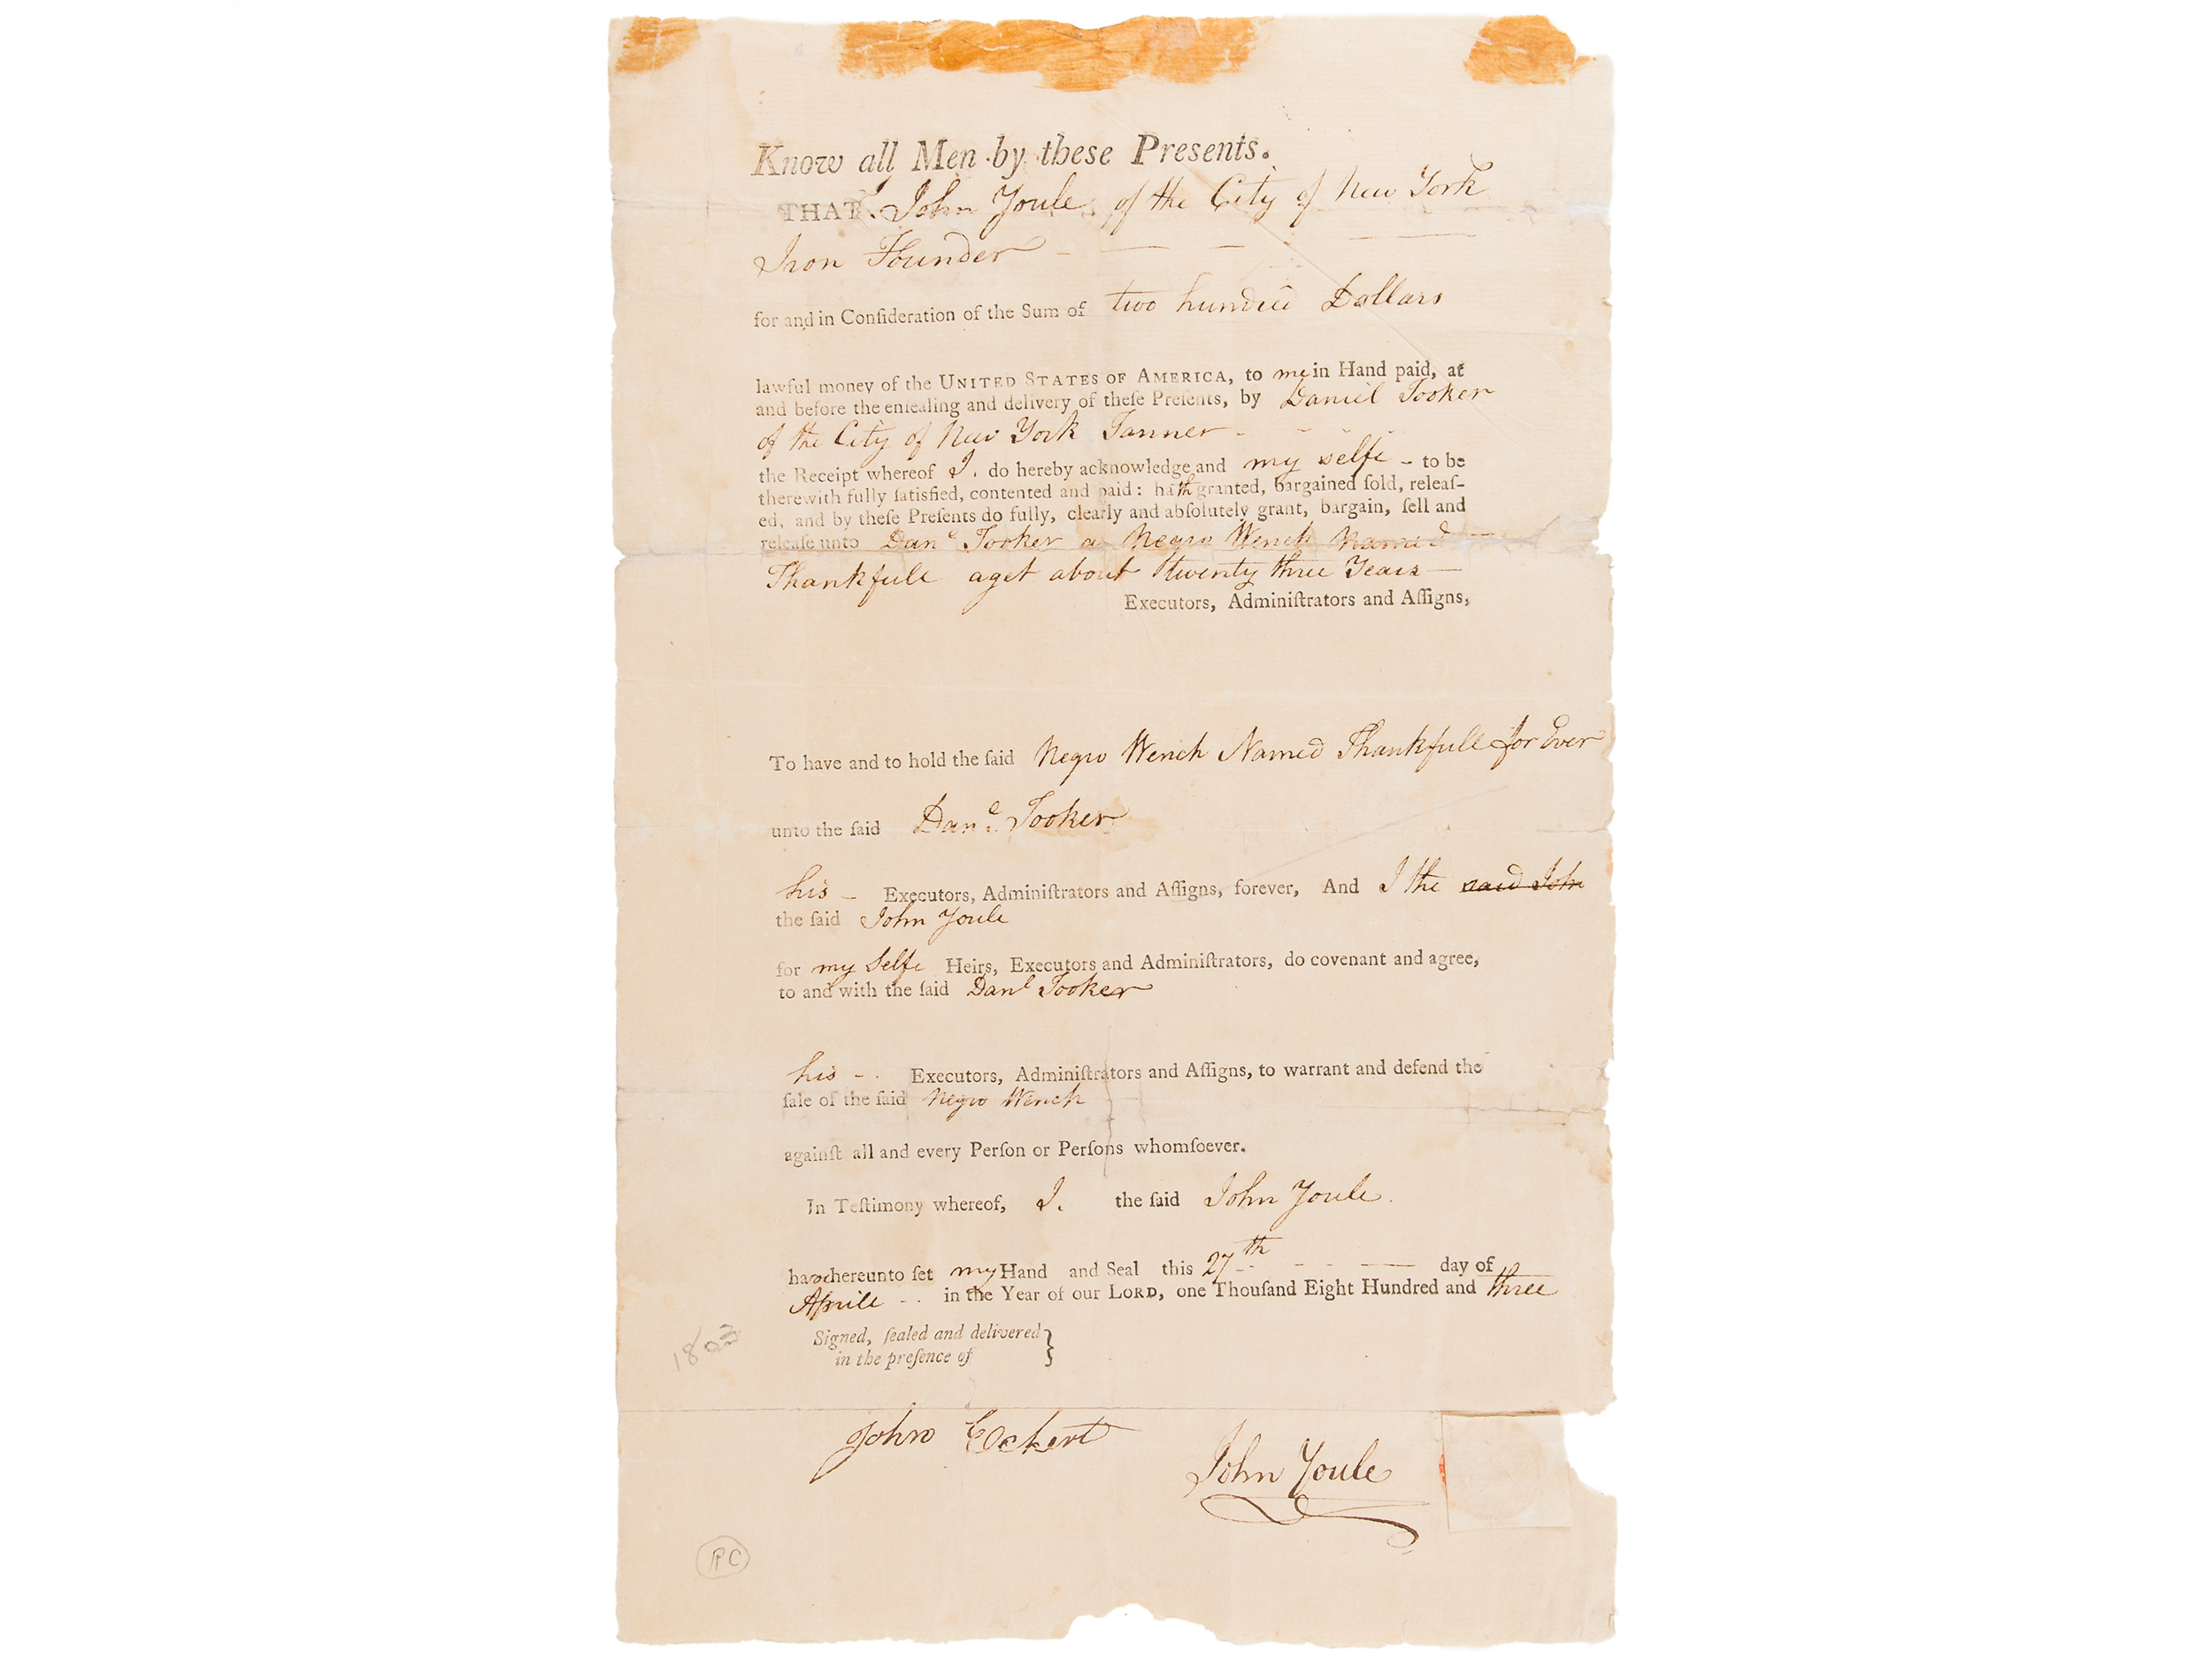 Know all Men by these Presents.
THAT I John Youle of the City of New York
Iron Founder
for and in Conſideration of the Sum of two hundred Dollars
lawful money of the UNITED STATES OF AMERICA, to me in Hand paid, at
and before the enſealing and delivery of theſe Preſents, by Daniel Tooker
of the City of New York Tanner
the Receipt whereof I. do hereby acknowledge and my selfe - to be
therewith fully ſatisfied, contented and paid: hath granted, bargained ſold, releaſ-
ed, and by theſe Preſents do fully, clearly and abſolutely grant, bargain, ſell and
releaſe unto Danl Tooker a Negro Wench Named
Thankfull aget about twenty three Years
Executors, Adminiſtrators and Aſſigns,
To have and to hold the ſaid Negro Wench Named Thankfull for Ever
unto the ſaid Danl Tooker
his - Executors, Adminiſtrators and Aſſigns, forever, And I the said John
the ſaid John Youle
for my Selfe Heirs, Executors and Adminiſtrators, do covenant and agree,
to and with the ſaid Danl Tooker
his - Executors, Adminiſtrators and Aſſigns, to warrant and defend the
ſale of the ſaid Negro Wench
againſt all and every Perſon or Perſons whomſoever.
In Teſtimony whereof, I. the ſaid John Youle.
have hereunto ſet my Hand and Seal this 27th day of
Aprile in the Year of our LORD, one Thouſand Eight Hundred and three
1803
Signed, ſealed and delivered }
in the preſence of
John Eckert
John Youle
RC